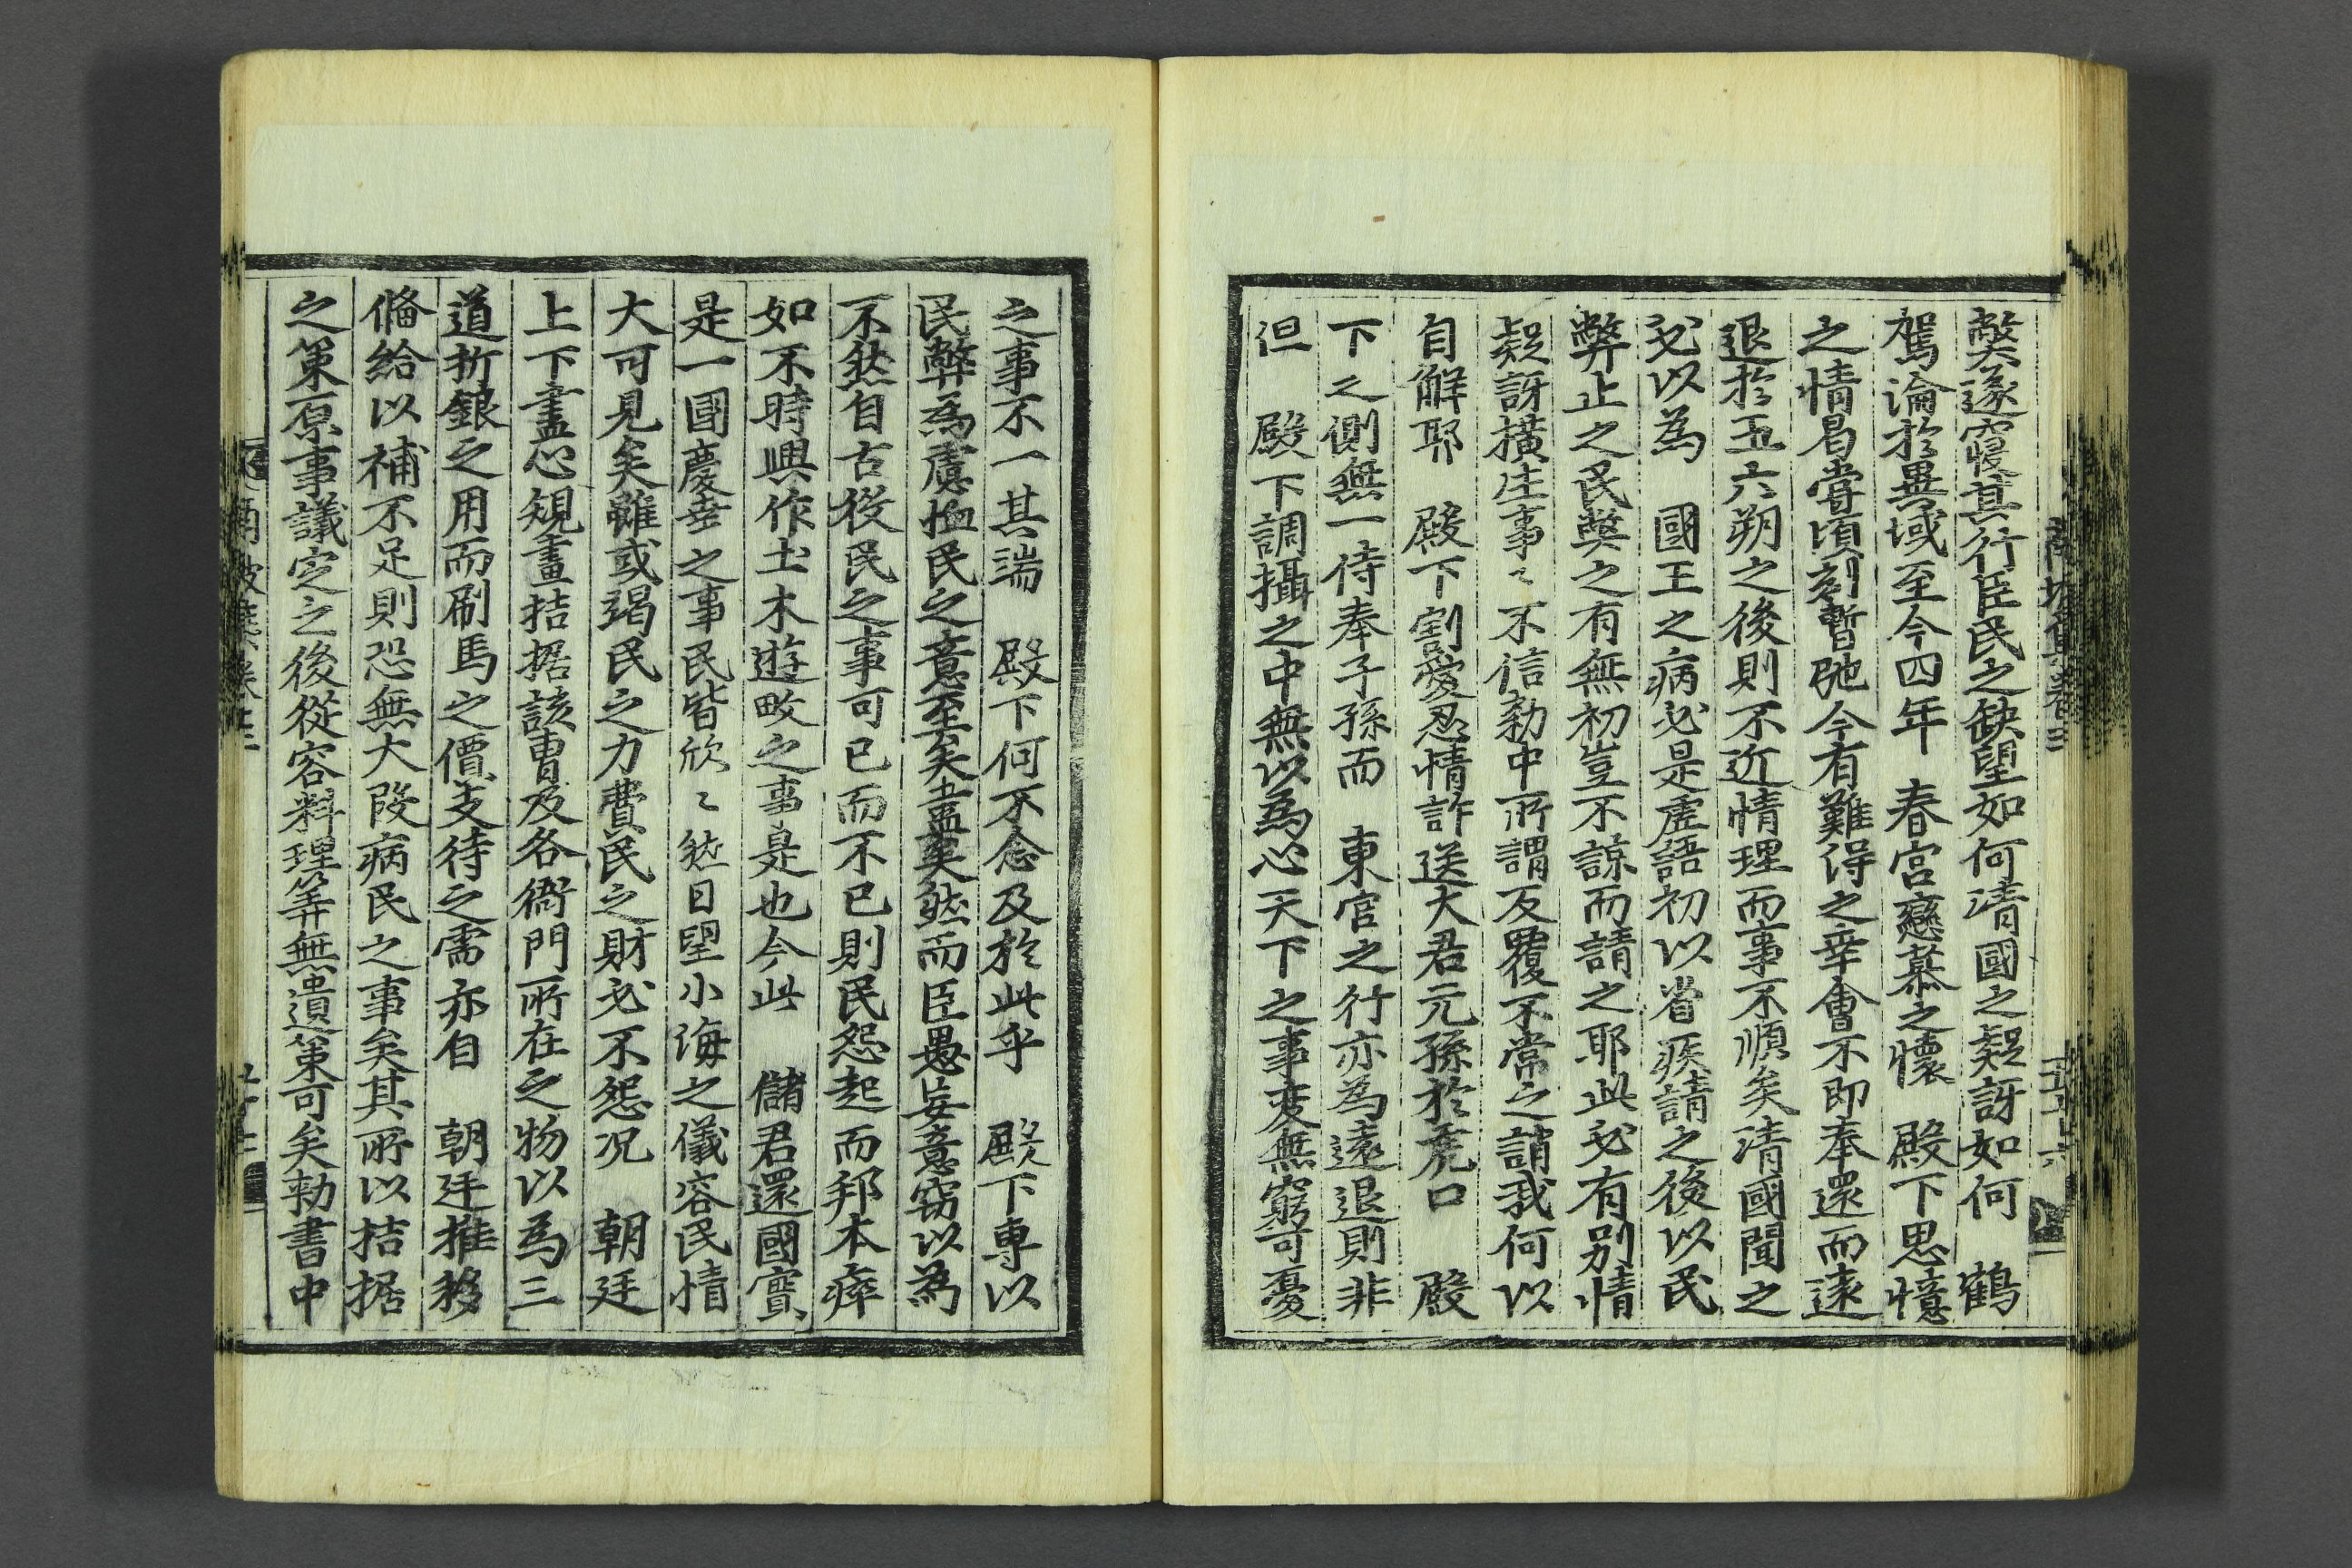 弊遂寢其行臣民之缺望如何清國之疑訝如何 鶴
駕淪於異域至今四年 春宮戀慕之懷 殿下思憶
之情曷嘗頃刻暫弛今有難得之幸會不即奉還而遠
退於五六朔之後則不近情理而事不順矣清國聞之
必以為 國王之病必是虛語初以省疾請之後以民
弊止之民弊之有無初豈不諒而請之耶此必有別情
疑訝橫生事〻不信勑中所謂反覆不常之誚我何以
自解耶 殿下割愛忍情詐送大君元孫於虎口 殿
下之側無一侍奉子孫而 東宮之行亦為遠退則非
但 殿下調攝之中無以為心天下之事変無窮可憂
之事不一其湍 殿下何不念及於此乎 殿下專以
民弊為慮恤民之意至矣盡矣然而臣愚妄意竊以為
不然自古役民之事可已而不已則民怨起而邦本瘁
如不時興作土木遊畋之事是也今此 儲君還國實
是一國慶幸之事民皆欣〻然日望小海之儀容民情
大可見矣雖或竭民之力費民之財必不怨况 朝廷
上下盡心規畫拮据該曹及各衙門所在之物以為三
道折銀之用而刷馬之價支待之需亦自 朝廷推移
俻給以補不足則恐無大段病民之事矣其所以拮据
之策原事議定之後從容料理筭無遺策可矣勑書中